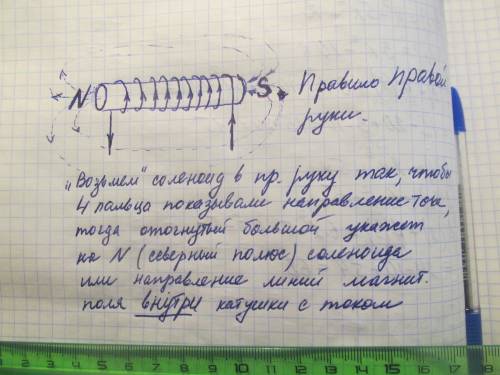 N S Правило правой
руки.
„Возьмем" соленоид в пр. руку так, чтобы
4 пальца показывали направление тока,
тогда отогнутый большой укажет
на N (северный полюс) соленоида
или направление линий магнит.
поля внутри катушки с током
0 1 2 3 4 5 6 7 8 9 10 11 12 13 14 15 16 17 18